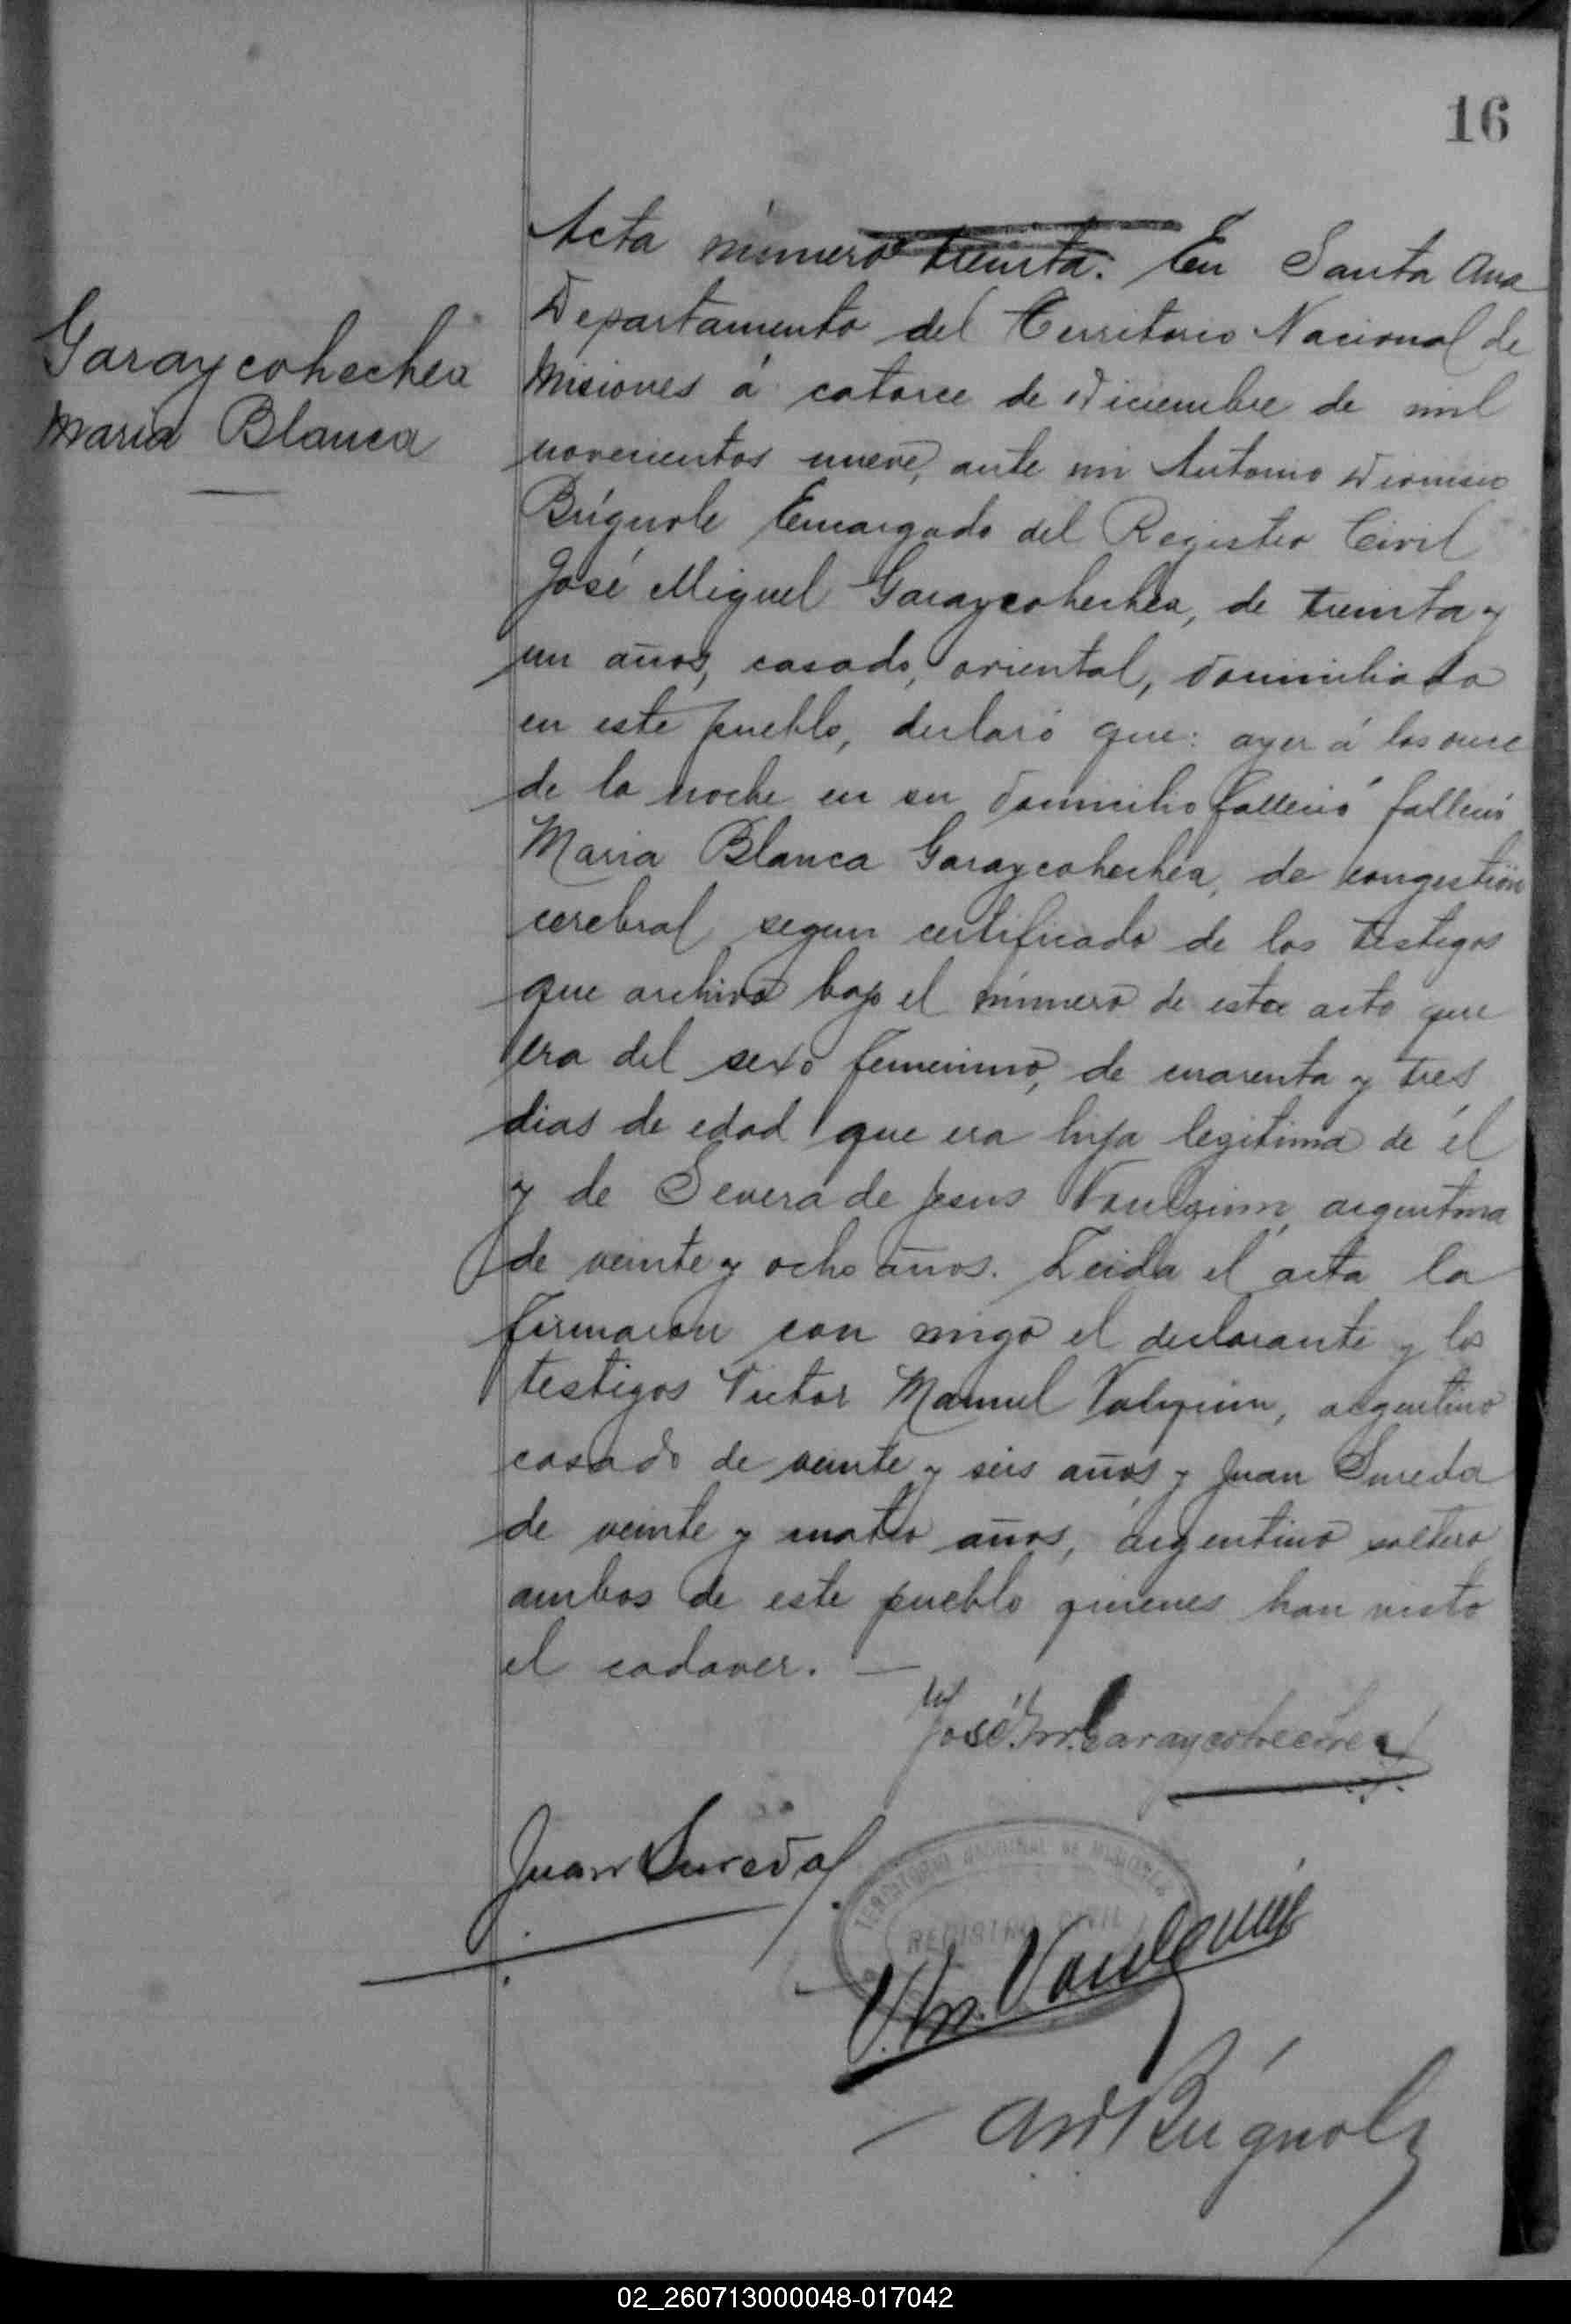 16
Acta número treinta. En Santa Ana
Departamento del Territorio Nacional de
Garaycohechea
Misiones á catorce de Diciembre de mil
Maria Blanca
novecientos nueve, ante mi Antonio Dionisio
Brígnole Encargado del Registro Civil
José Miguel Garaycohechea, de treinta y
un años, casado, oriental, domiciliado
en este pueblo, declaró que: ayer á las once
de la noche en su domicilio falleció falleció
Maria Blanca Garaycohechea, de congestión
cerebral segun certificado de los testigos
que archivo bajo el número de esta acta que
era del sexo femenino, de cuarenta y tres
dias de edad que era hija legitima de él
y de Severa de Jesus Voulquin, argentina
de veinte y ocho años. Leida el acta la
firmaron con migo el declarante y los
testigos Victor Manuel Valquin, argentino
casado de veinte y seis años y Juan Sureda
de veinte y cuatro años, argentino soltero
ambos de este pueblo quienes han visto
el cadaver. —
José M. Garaycohechea
Juan Sureda
TERRITORIO NACIONAL DE MISIONES
REGISTRO CIVIL
V. M. Voulquin
AD Brígnole
02_260713000048-017042